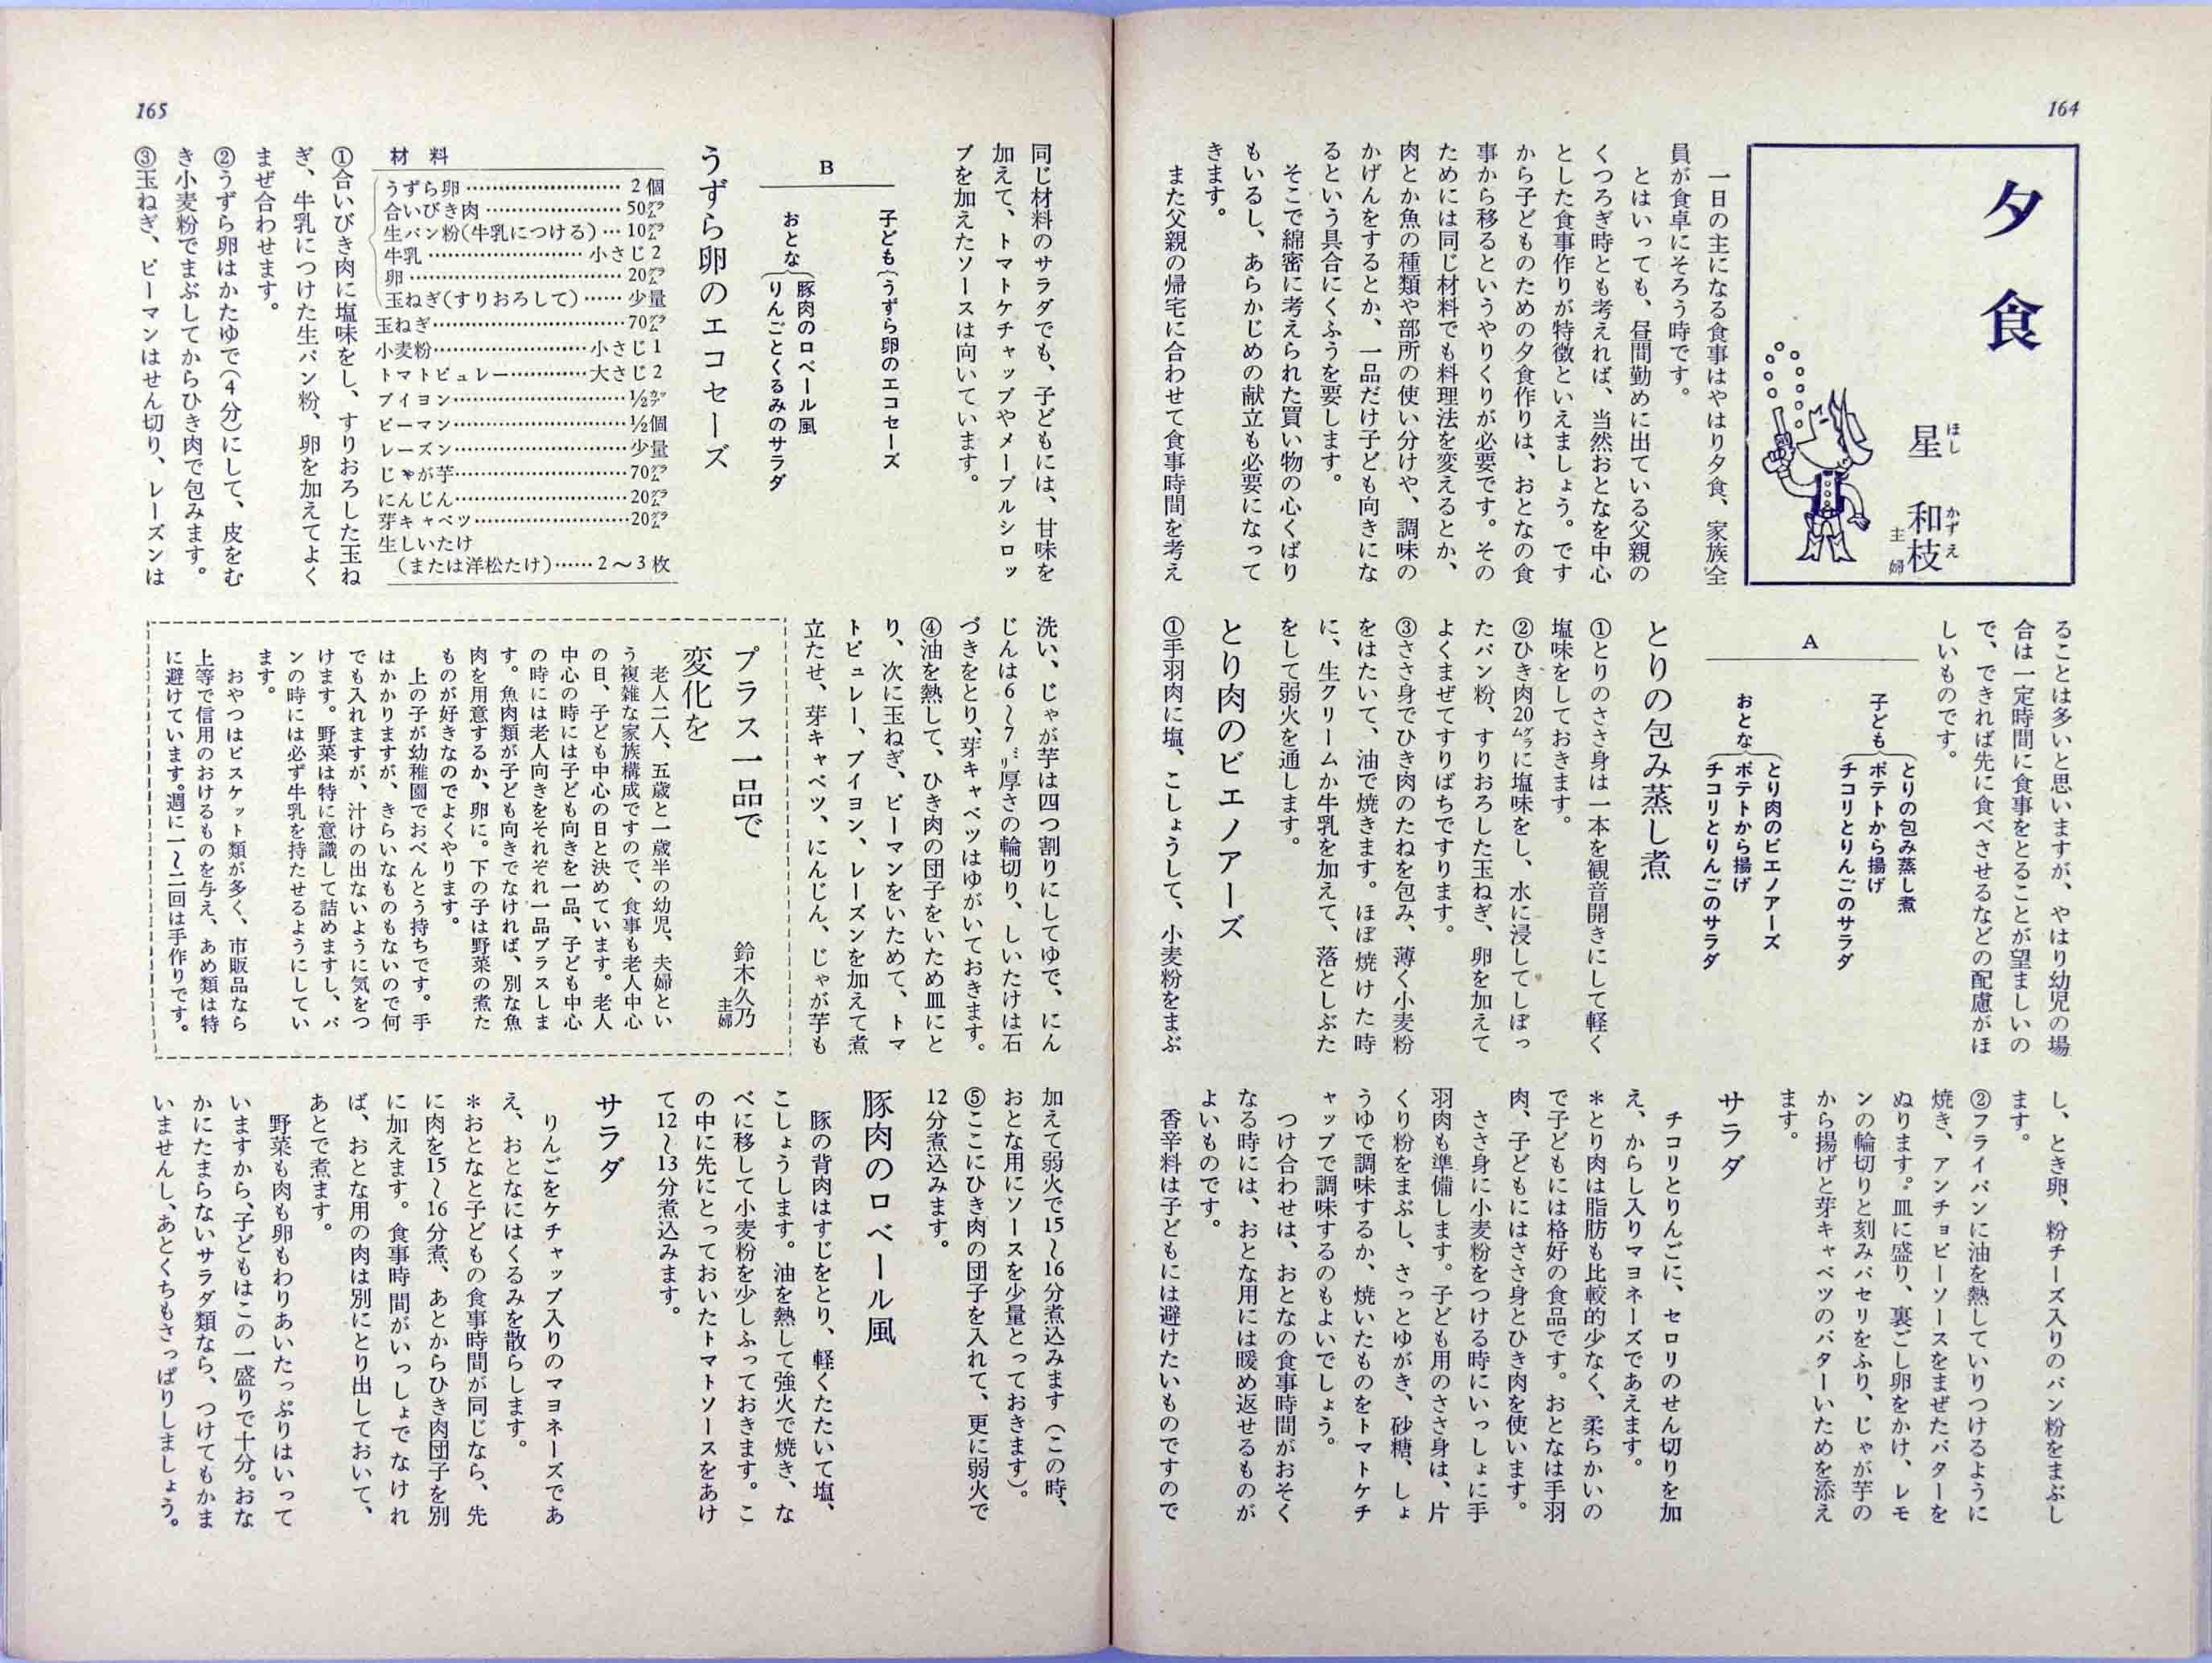 164
夕食
星 和枝
ほし かずえ
主婦
一日の主になる食事はやはり夕食、家族全
員が食卓にそろう時です。
とはいっても、昼間勤めに出ている父親の
くつろぎ時とも考えれば、当然おとなを中心
とした食事作りが特徴といえましょう。です
から子どものための夕食作りは、おとなの食
事から移るというやりくりが必要です。その
ためには同じ材料でも料理法を変えるとか、
肉とか魚の種類や部所の使い分けや、調味の
かげんをするとか、一品だけ子ども向きにな
るという具合にくふうを要します。
そこで綿密に考えられた買い物の心くばり
もいるし、あらかじめの献立も必要になって
きます。
また父親の帰宅に合わせて食事時間を考え
ることは多いと思いますが、やはり幼児の場
合は一定時間に食事をとることが望ましいの
で、できれば先に食べさせるなどの配慮がほ
しいものです。
A
子ども
とりの包み蒸し煮
ポテトから揚げ
チコリとりんごのサラダ
おとな
とり肉のビエノアーズ
ポテトから揚げ
チコリとりんごのサラダ
とりの包み蒸し煮
①とりのささ身は一本を観音開きにして軽く
塩味をしておきます。
②ひき肉20㌘に塩味をし、水に浸してしぼっ
たパン粉、すりおろした玉ねぎ、卵を加えて
よくまぜてすりばちですります。
③ささ身でひき肉のたねを包み、薄く小麦粉
をはたいて、油で焼きます。ほぼ焼けた時
に、生クリームか牛乳を加えて、落としぶた
をして弱火を通します。
とり肉のビエノアーズ
①手羽肉に塩、こしょうして、小麦粉をまぶ
し、とき卵、粉チーズ入りのパン粉をまぶし
ます。
②フライパンに油を熱していりつけるように
焼き、アンチョビーソースをまぜたバターを
ぬります。皿に盛り、裏ごし卵をかけ、レモ
ンの輪切りと刻みパセリをふり、じゃが芋の
から揚げと芽キャベツのバターいためを添え
ます。
サラダ
チコリとりんごに、セロリのせん切りを加
え、からし入りマヨネーズであえます。
＊とり肉は脂肪も比較的少なく、柔らかいの
で子どもには格好の食品です。おとなは手羽
肉、子どもにはささ身とひき肉を使います。
ささ身に小麦粉をつける時にいっしょに手
羽肉も準備します。子ども用のささ身は、片
くり粉をまぶし、さっとゆがき、砂糖、しょ
うゆで調味するか、焼いたものをトマトケチ
ャップで調味するのもよいでしょう。
つけ合わせは、おとなの食事時間がおそく
なる時には、おとな用には暖め返せるものが
よいものです。
香辛料は子どもには避けたいものですので
165
同じ材料のサラダでも、子どもには、甘味を
加えて、トマトケチャップやメープルシロッ
プを加えたソースは向いています。
B
子ども（うずら卵のエコセーズ
おとな
豚肉のロベール風
りんごとくるみのサラダ
うずら卵のエコセーズ
材料
うずら卵……2個
合いびき肉……50㌘
生パン粉(牛乳につける)…10㌘
牛乳……小さじ2
卵……20㌘
玉ねぎ(すりおろして)……少量
玉ねぎ……70㌘
小麦粉……小さじ1
トマトピュレー……大さじ2
ブイヨン……½㌍
ピーマン……½個
レーズン……少量
じゃが芋……70㌘
にんじん……20㌘
芽キャベツ……20㌘
生しいたけ
（または洋松たけ）……2〜3枚
①合いびき肉に塩味をし、すりおろした玉ね
ぎ、牛乳につけた生パン粉、卵を加えてよく
まぜ合わせます。
②うずら卵はかたゆで（4分）にして、皮をむ
き小麦粉でまぶしてからひき肉で包みます。
③玉ねぎ、ピーマンはせん切り、レーズンは
洗い、じゃが芋は四つ割りにしてゆで、にん
じんは6〜7㍉厚さの輪切り、しいたけは石
づきをとり、芽キャベツはゆがいておきます。
④油を熱して、ひき肉の団子をいため皿にと
り、次に玉ねぎ、ピーマンをいためて、トマ
トピュレー、ブイヨン、レーズンを加えて煮
立たせ、芽キャベツ、にんじん、じゃが芋も
プラス一品で
変化を
鈴木久乃
主婦
老人二人、五歳と一歳半の幼児、夫婦とい
う複雑な家族構成ですので、食事も老人中心
の日、子ども中心の日と決めています。老人
中心の時には子ども向きを一品、子ども中心
の時には老人向きをそれぞれ一品プラスしま
す。魚肉類が子ども向きでなければ、別な魚
肉を用意するか、卵に。下の子は野菜の煮た
ものが好きなのでよくやります。
上の子が幼稚園でおべんとう持ちです。手
はかかりますが、きらいなものもないので何
でも入れますが、汁けの出ないように気をつ
けます。野菜は特に意識して詰めますし、パ
ンの時には必ず牛乳を持たせるようにしてい
ます。
おやつはビスケット類が多く、市販品なら
上等で信用のおけるものを与え、あめ類は特
に避けています。週に一〜二回は手作りです。
加えて弱火で15〜16分煮込みます（この時、
おとな用にソースを少量とっておきます）。
⑤ここにひき肉の団子を入れて、更に弱火で
12分煮込みます。
豚肉のロベール風
豚の背肉はすじをとり、軽くたたいて塩、
こしょうします。油を熱して強火で焼き、な
べに移して小麦粉を少しふっておきます。こ
の中に先にとっておいたトマトソースをあけ
て12〜13分煮込みます。
サラダ
りんごをケチャップ入りのマヨネーズであ
え、おとなにはくるみを散らします。
＊おとなと子どもの食事時間が同じなら、先
に肉を15〜16分煮、あとからひき肉団子を別
に加えます。食事時間がいっしょでなけれ
ば、おとな用の肉は別にとり出しておいて、
あとで煮ます。
野菜も肉も卵もわりあいたっぷりはいって
いますから、子どもはこの一盛りで十分。おな
かにたまらないサラダ類なら、つけてもかま
いませんし、あとくちもさっぱりしましょう。